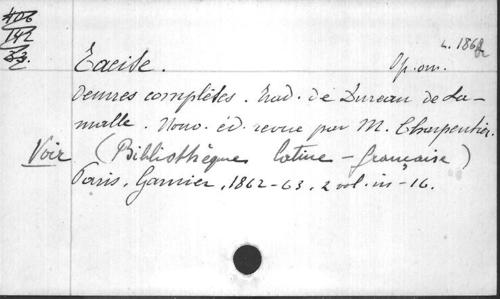 406
142
33.
L. 186
Tacite.
Op. om.
Oeuvres complètes. Trad. de Dureau de La-
malle. Nouv. éd. revue par M. Charpentier.
Voir (Bibliothèque latine-française)
Paris, Garnier, 1862-63, 2 vol. in-16.